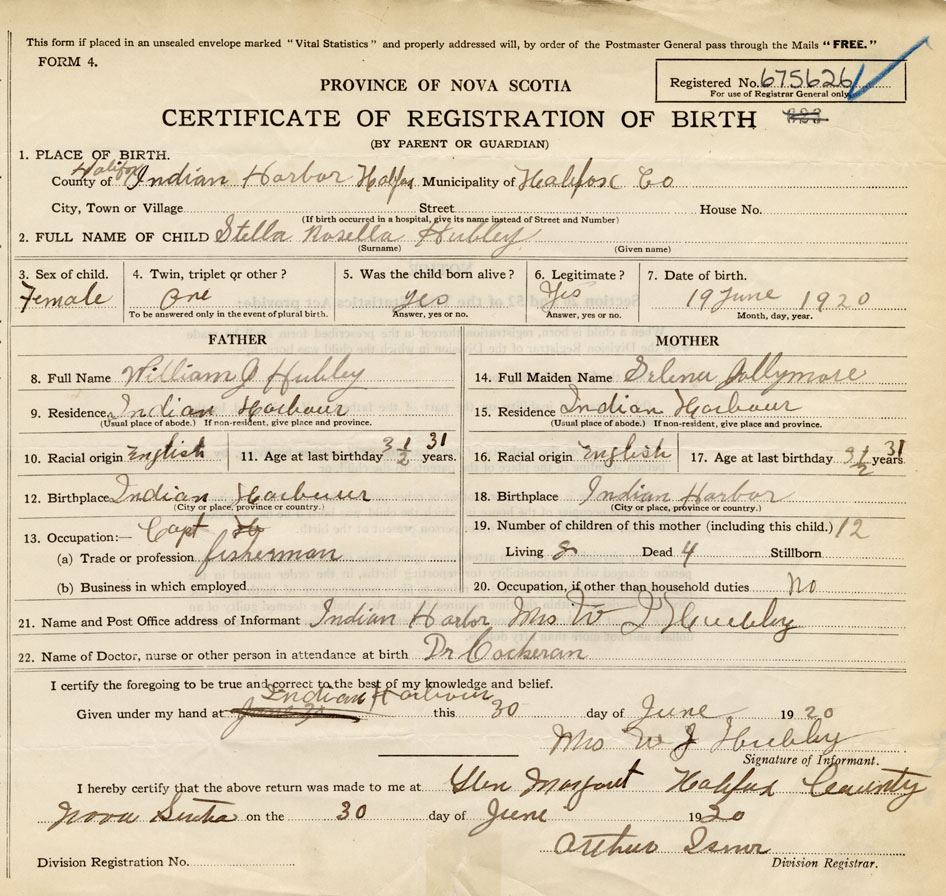 This form if placed in an unsealed envelope marked "Vital Statistics" and properly addressed will, by order of the Postmaster General pass through the Mails "FREE."
FORM 4.
Registered No. 675626
For use of Registrar General only.
PROVINCE OF NOVA SCOTIA
CERTIFICATE OF REGISTRATION OF BIRTH
(BY PARENT OR GUARDIAN)
1. PLACE OF BIRTH.
Halifax
County of Indian Harbor Halfax Municipality of Halifax Co
City, Town or Village Street House No.
(If birth occurred in a hospital, give its name instead of Street and Number)
2. FULL NAME OF CHILD Stella Rosella Hubley
(Surname) (Given name)
3. Sex of child. 4. Twin, triplet or other? 5. Was the child born alive? 6. Legitimate? 7. Date of birth.
Female One yes Yes 19 June 1920
To be answered only in the event of plural birth. Answer, yes or no. Answer, yes or no. Month, day, year.
FATHER MOTHER
8. Full Name William J Hubley 14. Full Maiden Name Selena Jollymore
9. Residence Indian Harbour 15. Residence Indian Harbour
(Usual place of abode.) If non-resident, give place and province. (Usual place of abode.) If non-resident, give place and province.
10. Racial origin English 11. Age at last birthday 31 years. 16. Racial origin English 17. Age at last birthday 31 years
12. Birthplace Indian Harbour 18. Birthplace Indian Harbor
(City or place, province or country.) (City or place, province or country.)
13. Occupation:— Capt 19. Number of children of this mother (including this child.) 12
(a) Trade or profession fisherman Living 8 Dead 4 Stillborn
(b) Business in which employed 20. Occupation, if other than household duties No
21. Name and Post Office address of Informant Indian Harbor Mrs W J Hubley
22. Name of Doctor, nurse or other person in attendance at birth Dr Cockeran
I certify the foregoing to be true and correct to the best of my knowledge and belief.
Indian Harbour
Given under my hand at this 30 day of June 1920
Mrs W J Hubley
Signature of Informant.
I hereby certify that the above return was made to me at Glen Margaret Halifax County
Nova Scotia on the 30 day of June 1920
Arthur Isnor
Division Registration No. Division Registrar.